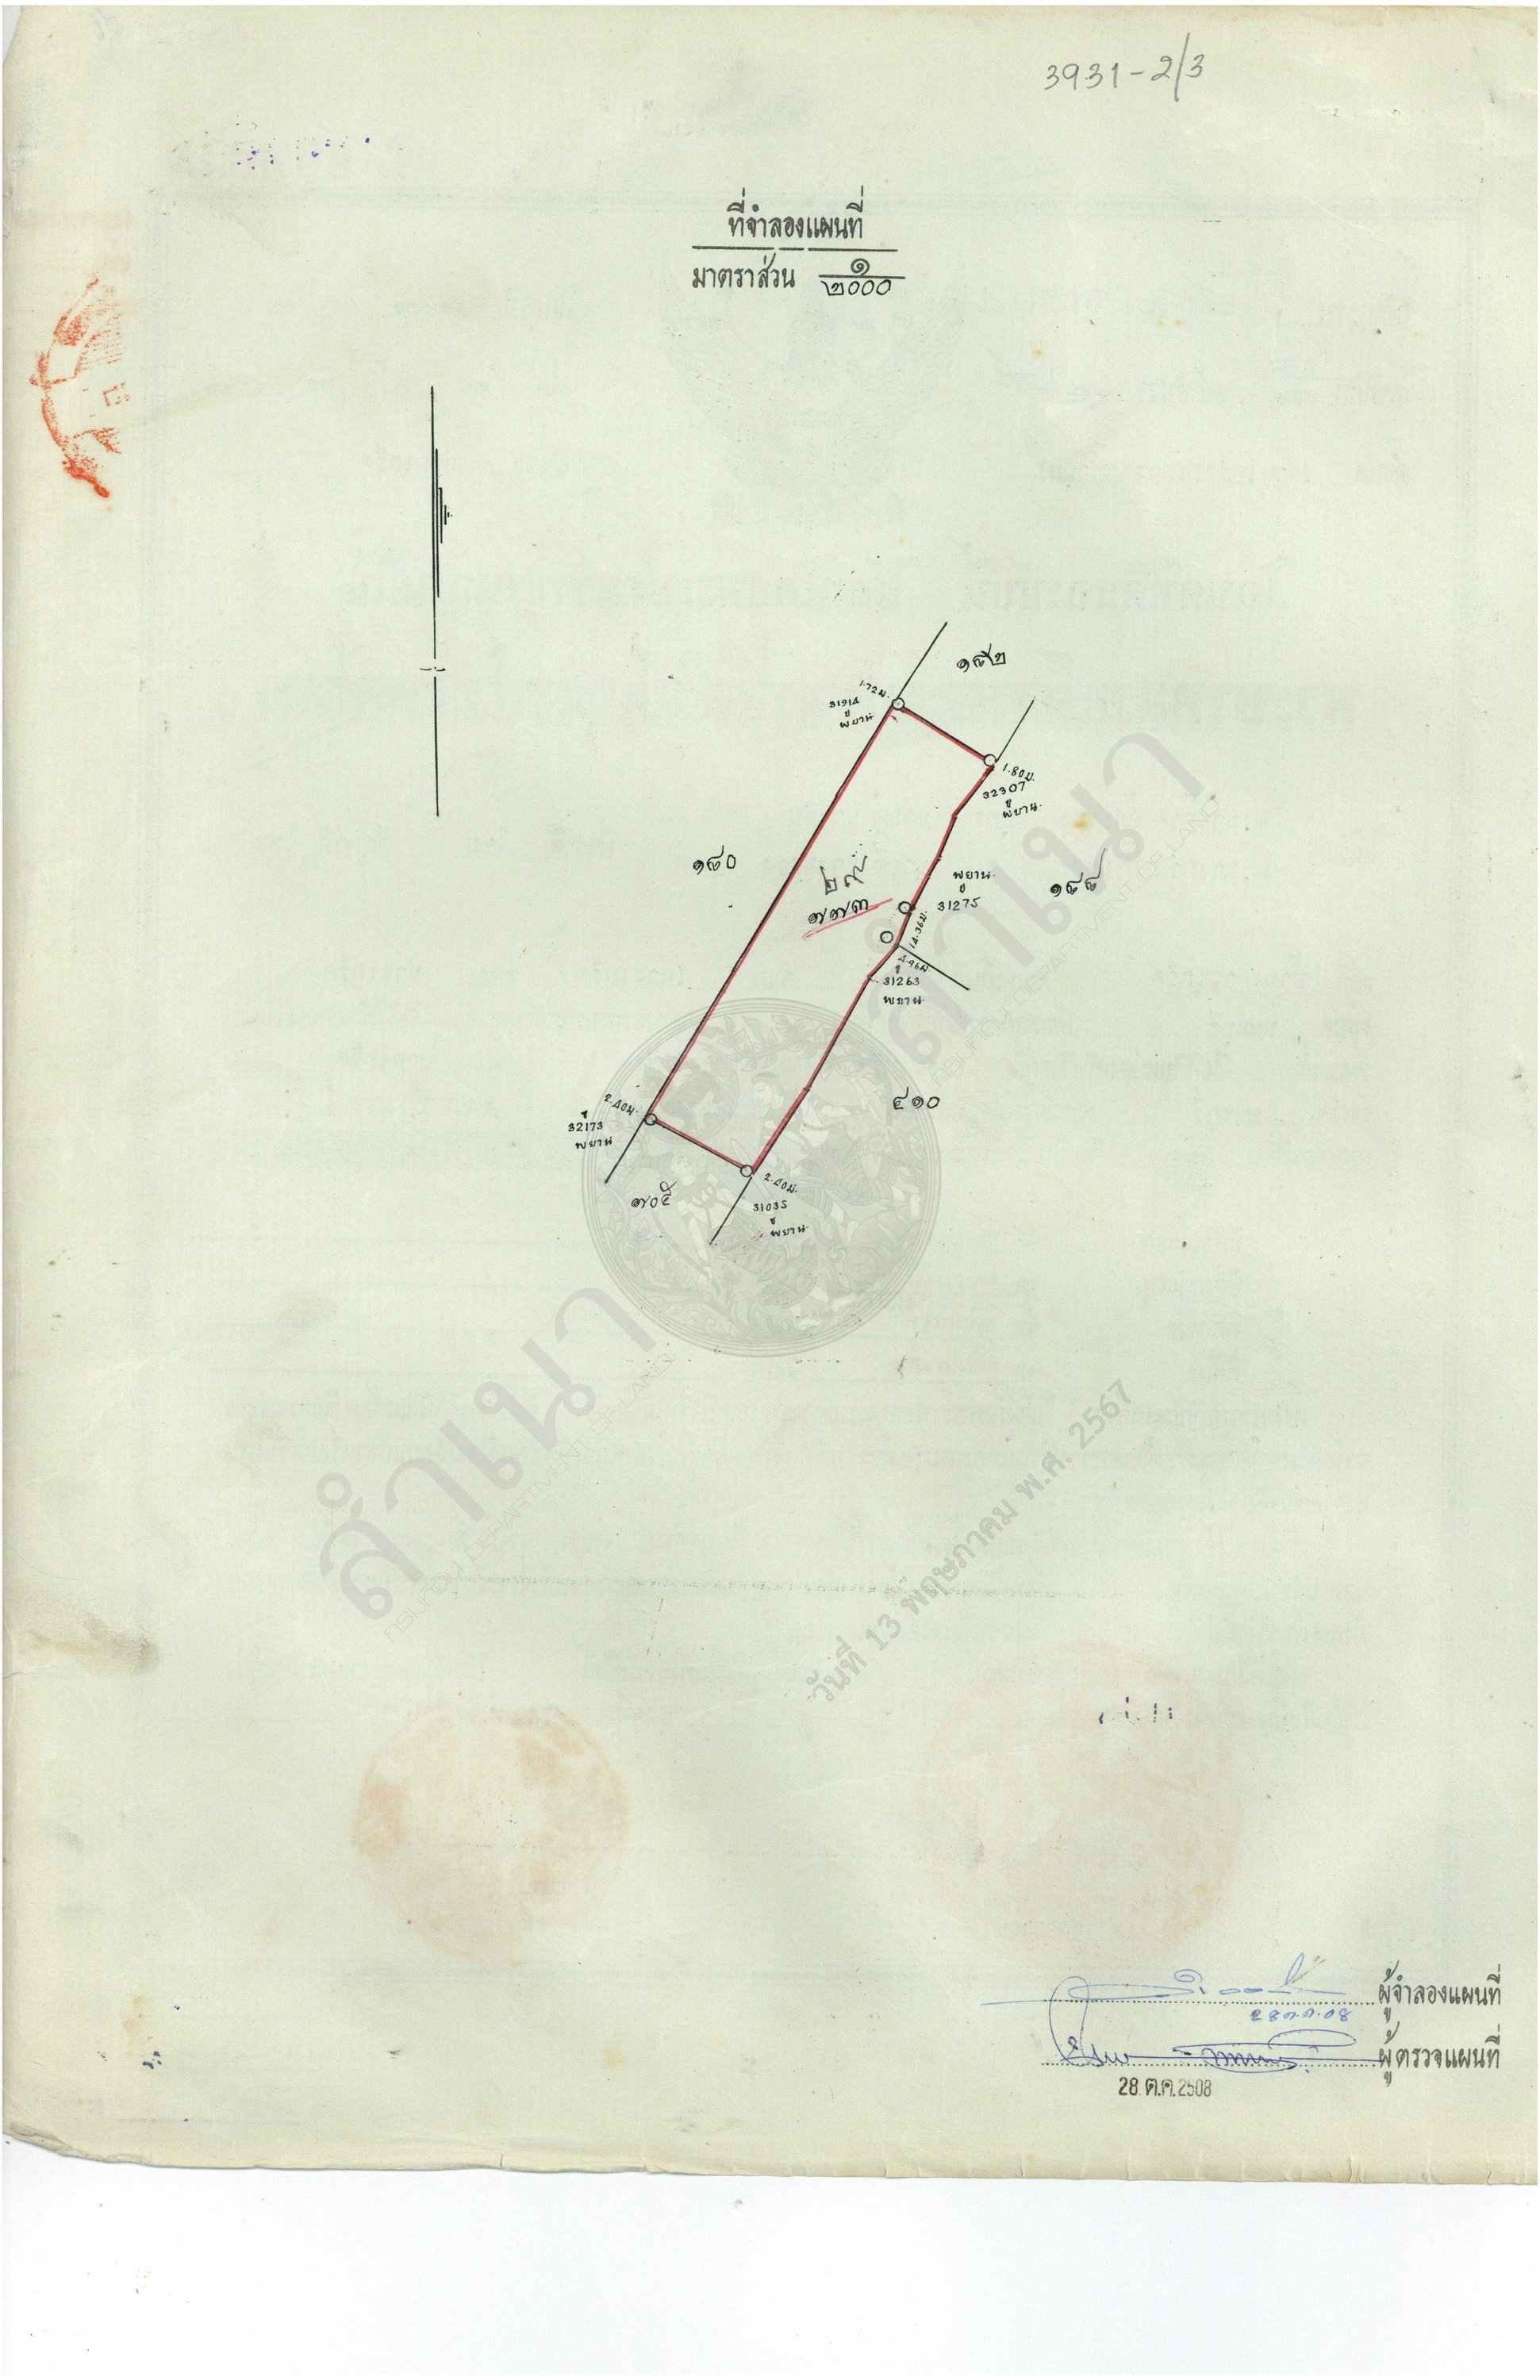 3931-2/3
ที่จำลองแผนที่
มาตราส่วน ๑
๒๐๐๐
1.72 ม.
31914
ปู
พยาน
1.80 ม.
32307
ปู
พยาน
๑๘๐
๗๗๓
พยาน
ปู
31275
๑๘๘
14.36 ม.
4.96 ม.
ปู
31263
พยาน
๔๑๐
2.40 ม.
ปู
32173
พยาน
๗๐๕
2.40 ม.
31035
ปู
พยาน
สำเนา
กรมที่ดิน DEPARTMENT OF LAND
สำเนา
กรมที่ดิน DEPARTMENT OF LAND
วันที่ 13 พฤษภาคม พ.ศ. 2567
ผู้จำลองแผนที่
28 ต.ค. 08
ผู้ตรวจแผนที่
28 ต.ค. 2508